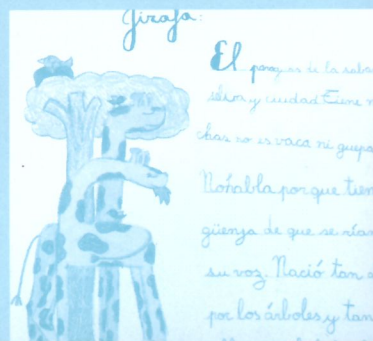 Jirafa:
El de la saba
y ciudad Tiene m
chas no es vaca ni guepa
No habla porque tien
güenza de que se rían
su voz. Nació tan a
por los árboles y tan